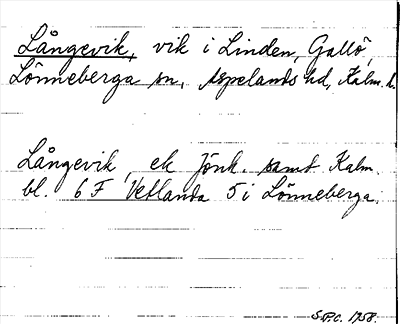 Långevik, vik i Linden, Gallö,
Lönneberga sn, Aspelands hd, Kalm. l.
Långevik, ek Jönk. samt Kalm.
bl. 6 F Vetlanda 5 i Lönneberga.
S.P.C. 1958.